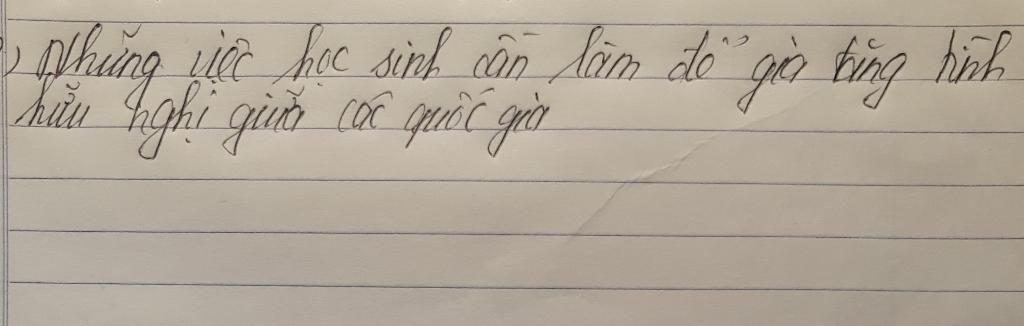 ) Những việc học sinh cần làm để gia tăng tình
hữu nghị giữa các quốc gia